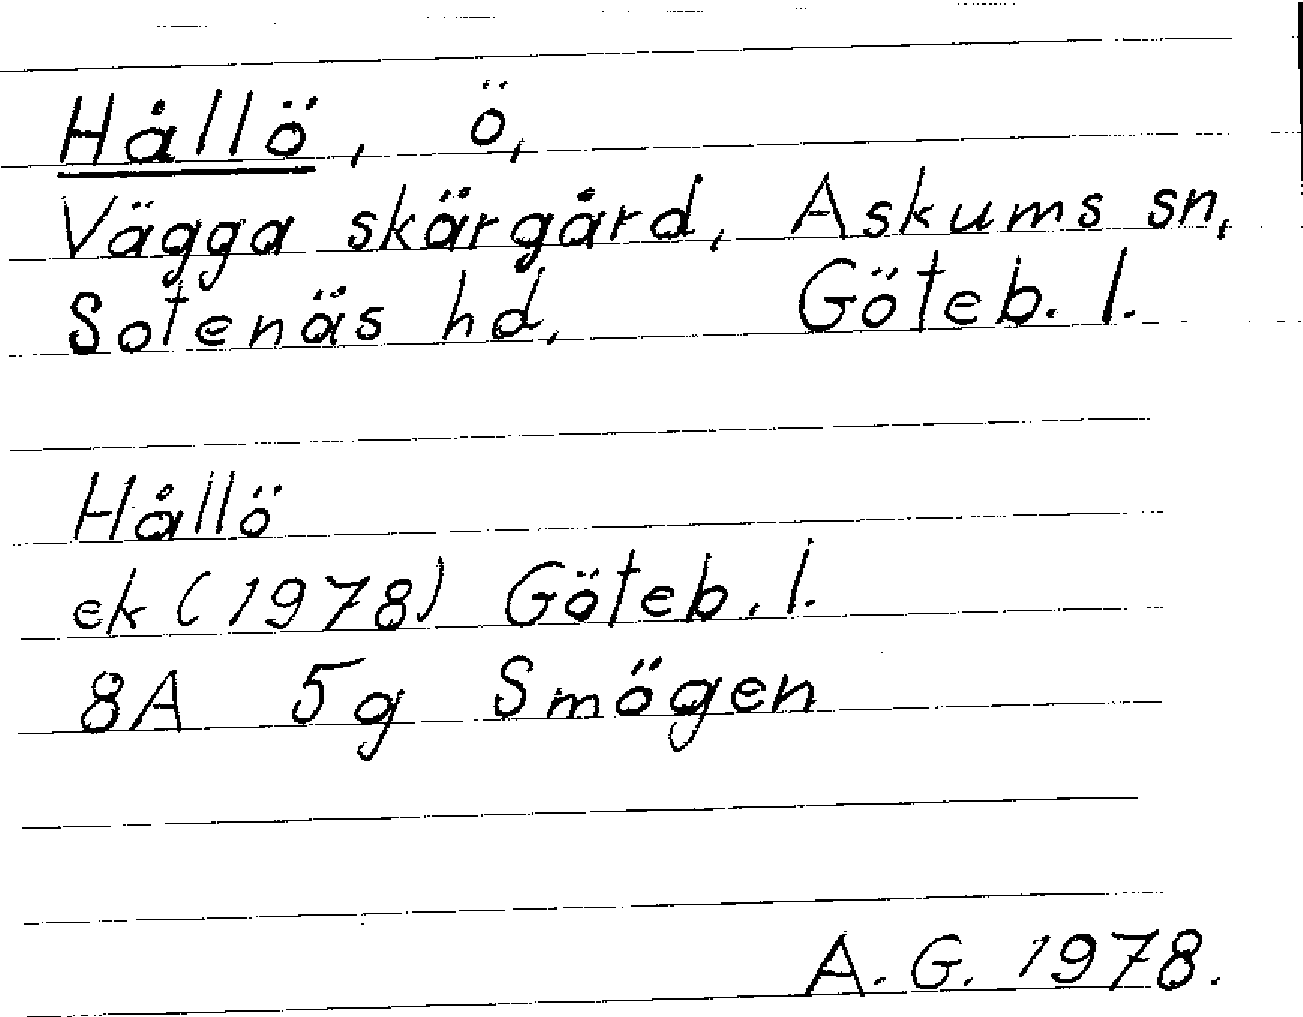 Hållö, ö,
Vägga skärgård, Askums sn,
Sotenäs hd, Göteb. l.
Hållö
ek (1978) Göteb. l.
8A 5g Smögen
A. G. 1978.